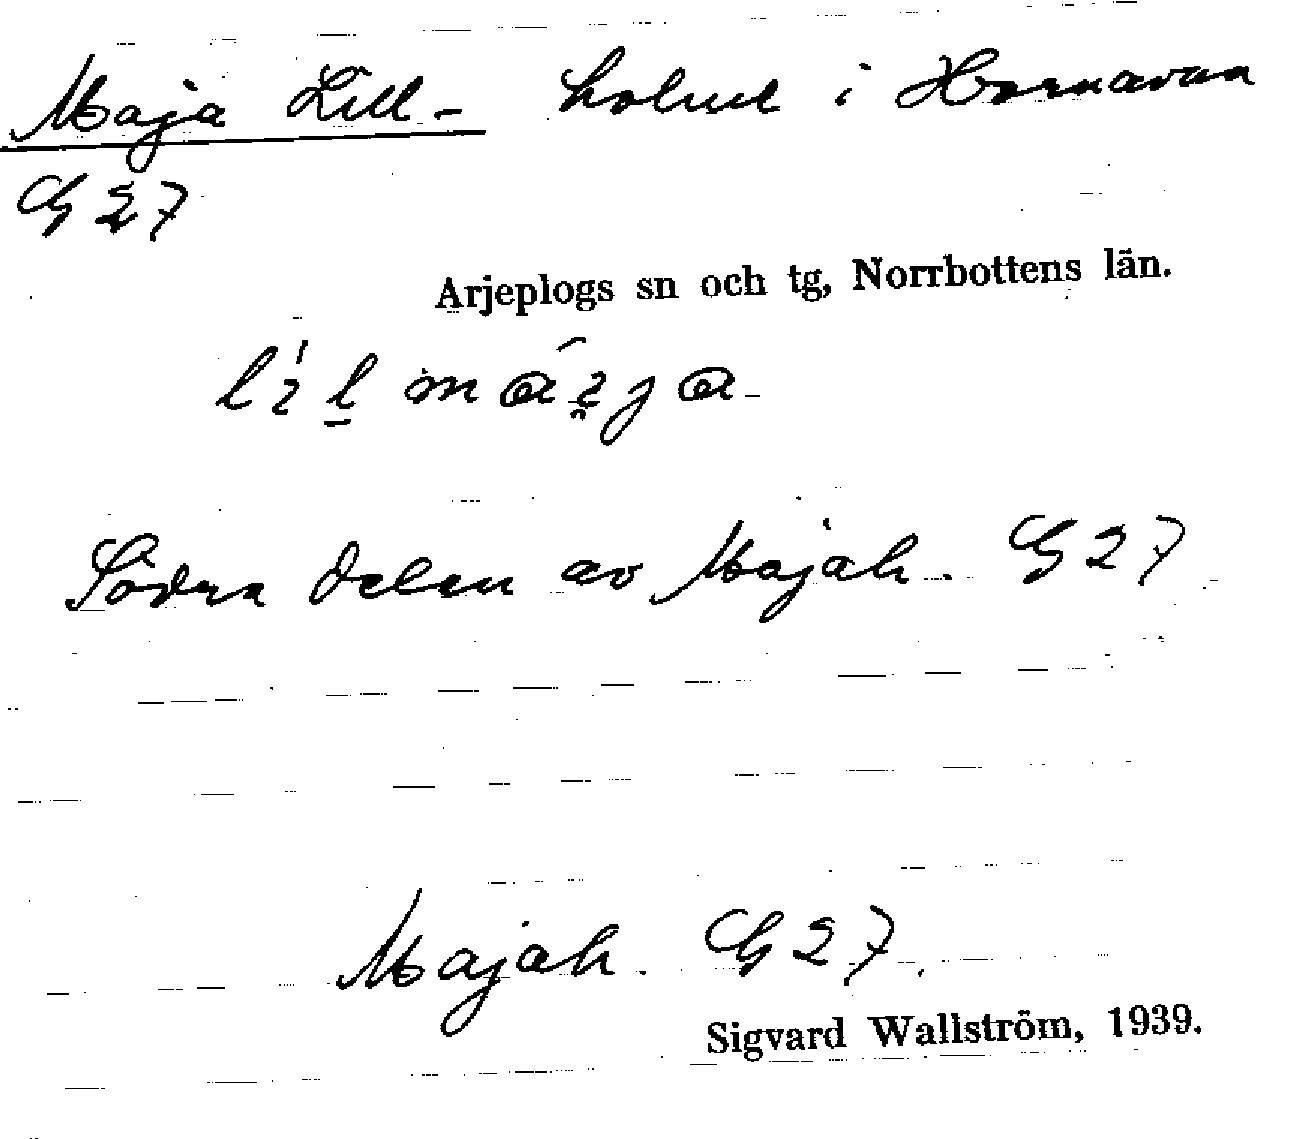 Maja Lill- holme i Hornavan
G 27
Arjeplogs sn och tg, Norrbottens län.
Södra delen av Majah. G 27
Majah. G 27.
Sigvard Wallström, 1939.